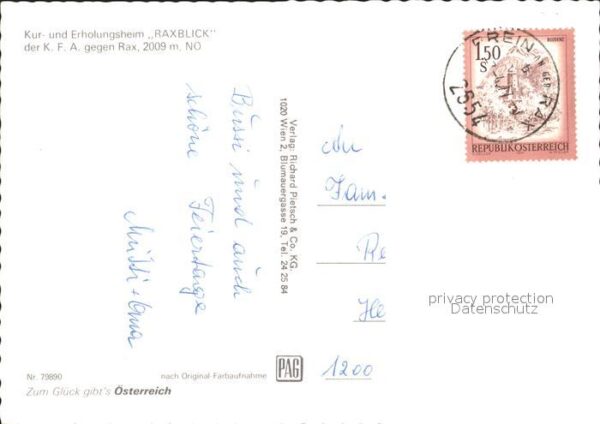 Kur- und Erholungsheim „RAXBLICK"
der K. F. A. gegen Rax, 2009 m, NÖ
Bussi und auch
schöne Feiertage
Mutti + Oma
Verlag: Richard Pietsch & Co. KG.
1020 Wien 2, Blumauergasse 19, Tel. 24 25 84
1.50
S
REPUBLIK ÖSTERREICH
FREIN AN DER RAX
2654
An
Fam.
Re
He
1200
privacy protection
Datenschutz
Nr. 79890
nach Original-Farbaufnahme
PAG
Zum Glück gibt's Österreich